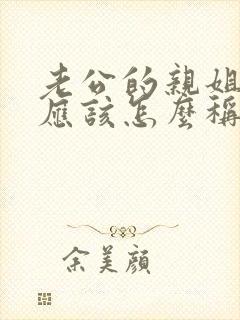 老公的親姐
應該怎麼稱
余美顏